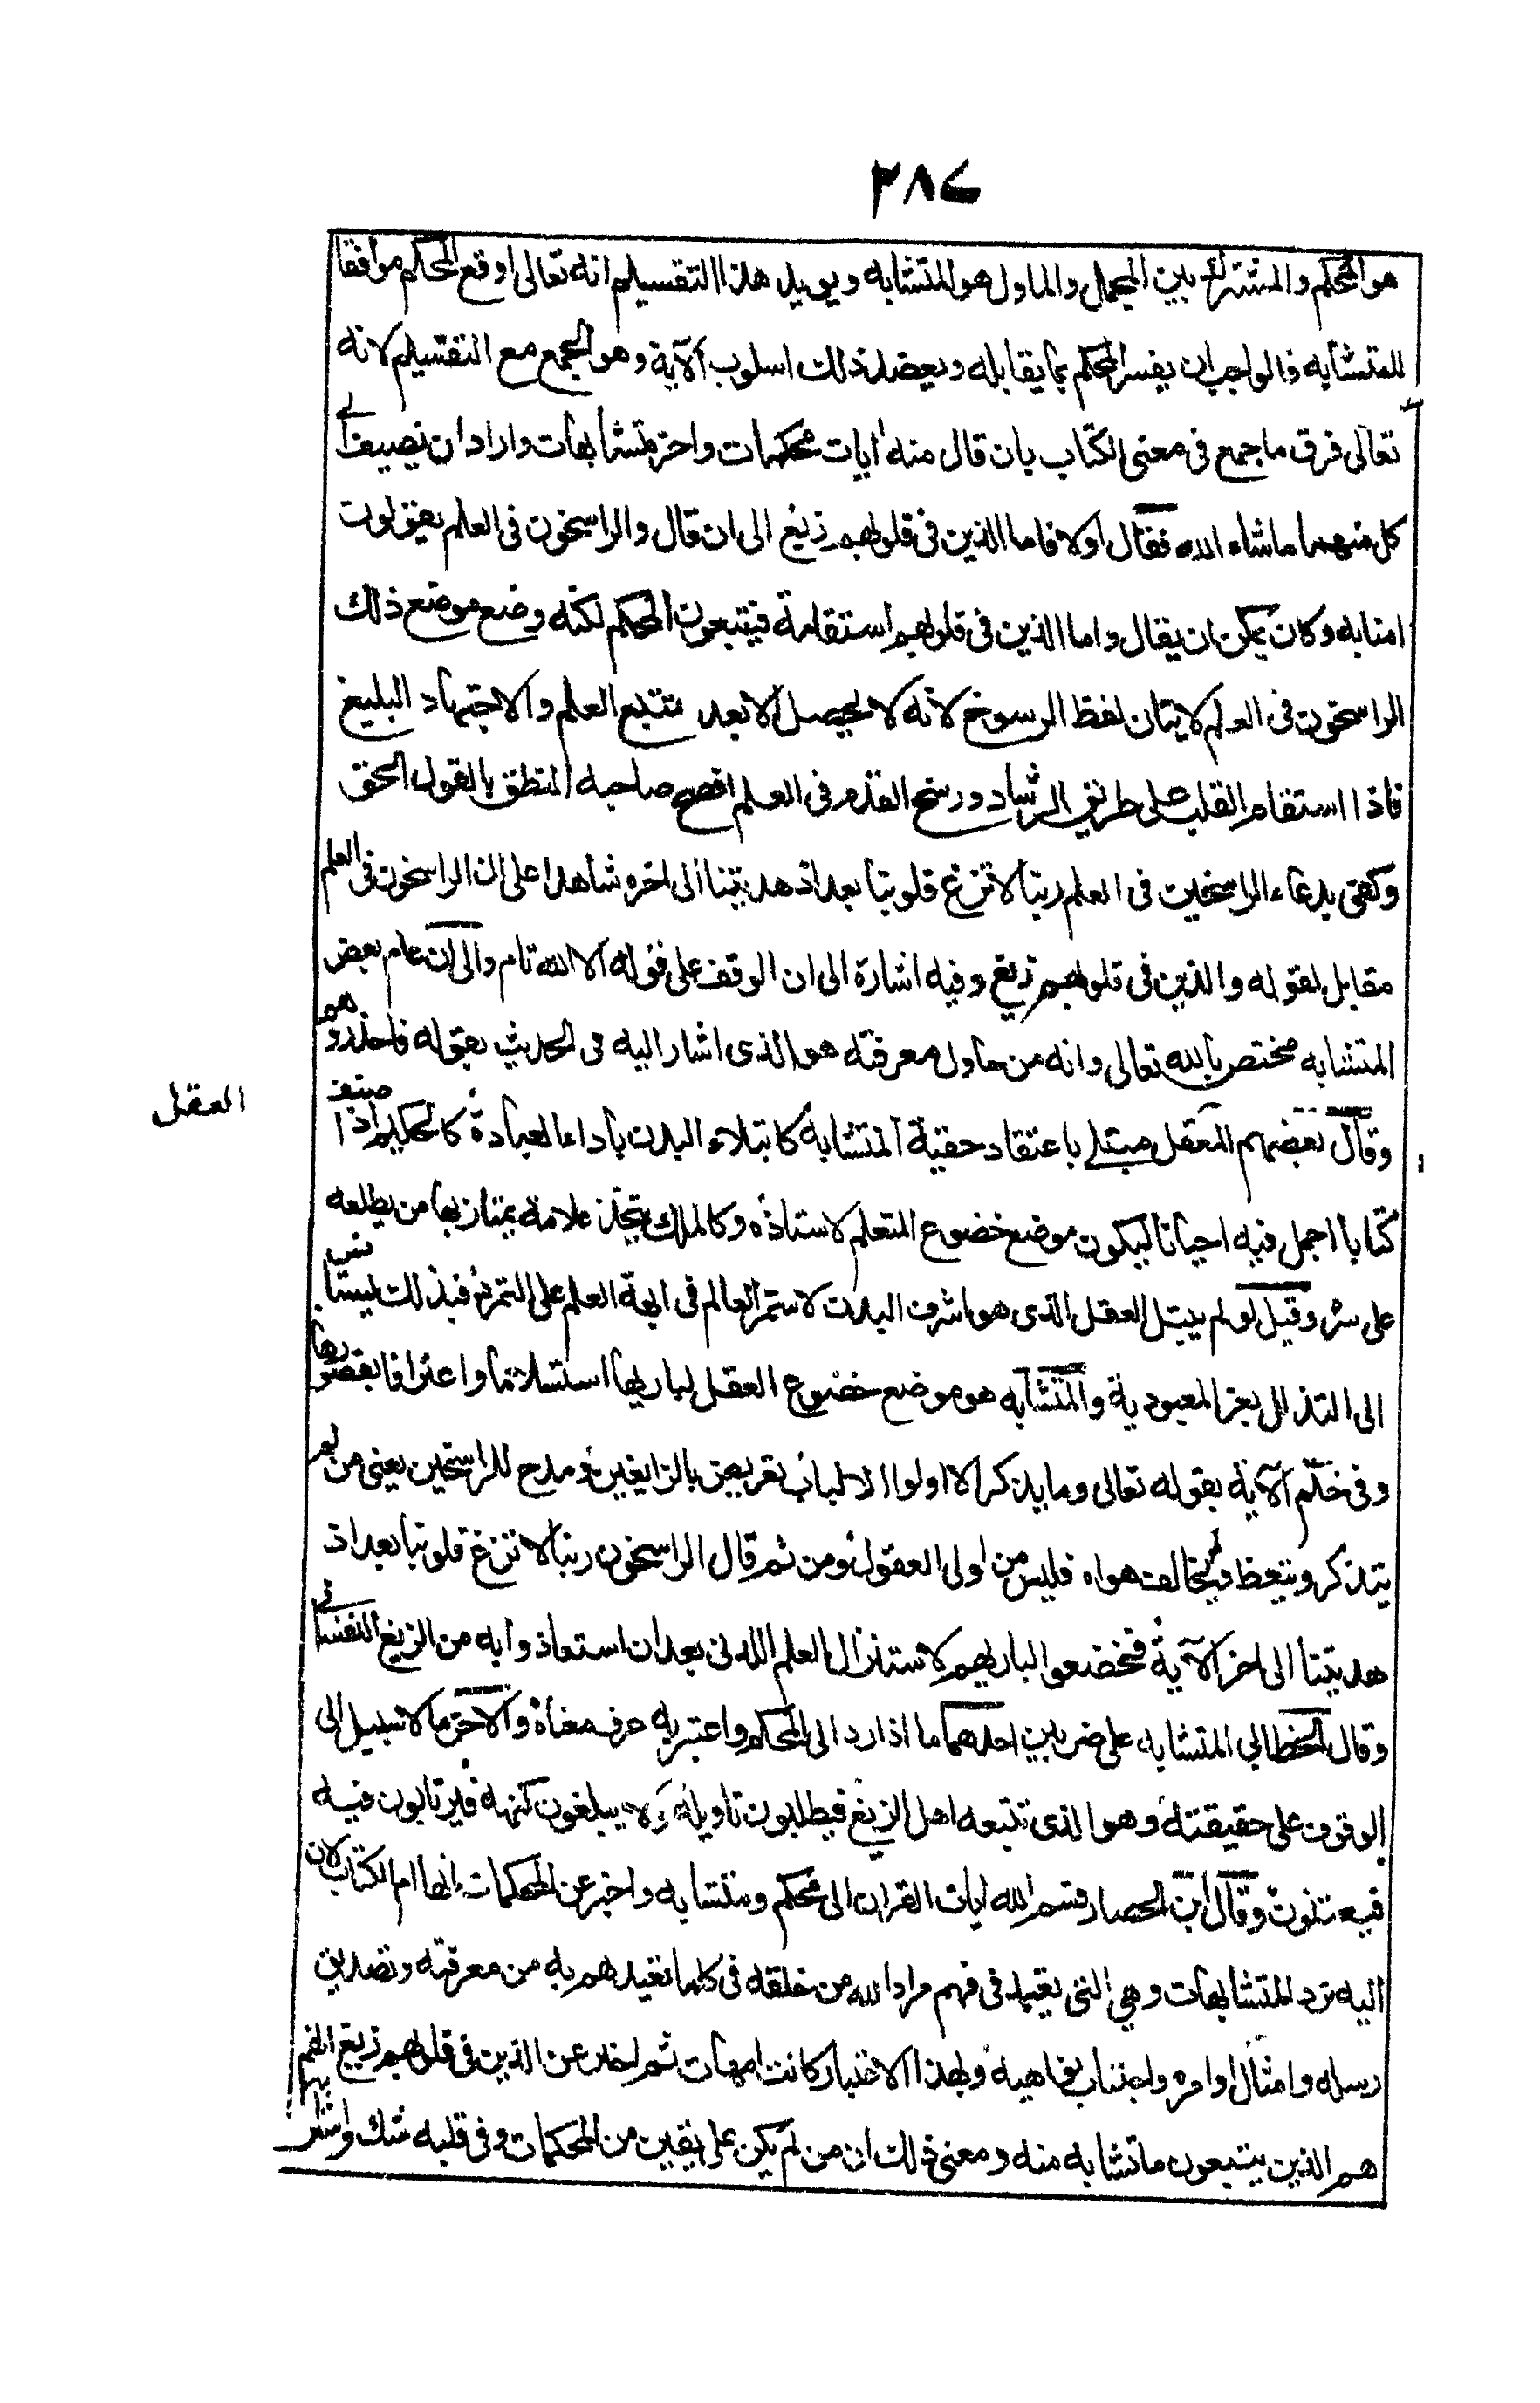 ٣٨٧
هو المحكم والمشترك بين المجمل والماول هو المتشابه ويويد هذا التقسيم انه تعالى اوقع المحكم موافقا
للمتشابه فالواجب ان يفسر المحكم بما يقابله ويعضد ذلك اسلوب الآية وهو الجمع مع التقسيم لانه
تعالى فرق ما جمع فى معنى الكتاب بان قال منه ايات محكمات واخر متشابهات واراد ان يضيف الى
كل منهما ما شاء الله فقال اولا فاما الذين فى قلوبهم زيغ الى ان قال والراسخون فى العلم يقولون
امنا به وكان يمكن ان يقال واما الذين فى قلوبهم استقامة فيتبعون المحكم لكنه وضع موضع ذلك
الراسخون فى العلم لاتيان لفظ الرسوخ لانه لا يحصل الا بعد تتبع العلم والاجتهاد البليغ
فاذا استقام القلب على طريق الرشاد ورسخ القدم فى العلم افصح صاحبه المنطق بالقول الحق
وكفى بدعاء الراسخين فى العلم ربنا لا تزغ قلوبنا بعد اذ هديتنا الى اخره شاهدا على ان الراسخون فى العلم
مقابل لقوله والذين فى قلوبهم زيغ وفيه اشارة الى ان الوقف على قوله الا الله تام والى ان علم بعض
المتشابه مختص بالله تعالى وانه من حاول معرفته هو الذى اشار اليه فى الحديث بقوله فاحذروهم
وقال بعضهم العقل مبتلى باعتقاد حقية المتشابه كابتلاء البدن باداء العبادة كالحكيم اذا صنف
العقل
كتابا اجمل فيه احيانا ليكون موضع خضوع المتعلم لاستاذه وكالملك يتخذ علامة يمتاز بها من يطلعه
على سره وقيل لو لم يبتل العقل الذى هو اشرف البدن لاستمر العالم فى ابهة العلم على التمرد فبذلك ليستانس
الى التذلل بعز العبودية والمتشابه هو موضع خضوع العقل لباريها استسلاما واعترافا بقصورها
وفى ختم الآية بقوله تعالى وما يذكر الا اولوا الالباب تعريض بالزايغين ومدح للراسخين يعنى من لم
يتذكر ويتعظ ويخالف هواه فليس من اولى العقول ومن ثم قال الراسخون ربنا لا تزغ قلوبنا بعد اذ
هديتنا الى اخر الآية فخضعوا لباريهم لاستنزال العلم اللدنى بعد ان استعاذوا به من الزيغ النفسانى
وقال الخطابي المتشابه على ضربين احدهما ما اذا رد الى المحكم واعتبر به عرف معناه والآخر ما لا سبيل الى
الوقوف على حقيقته وهو الذى تتبعه اهل الزيغ فيطلبون تاويله ولا يبلغون كنهه فيرتابون فيه
فيفتنون وقال ابن الحصار قسم الله ايات القران الى محكم ومتشابه واخبر عن المحكمات انها ام الكتاب لان
اليه ترد المتشابهات وهي التى تعتمد فى فهم مراد الله من خلقه فى كلما تعبدهم به من معرفته وتصديق
رسله وامتثال اوامره واجتناب نواهيه ولهذا الاختبار كانت امهات ثم اخبر عن الذين فى قلوبهم زيغ انهم
هم الذين يتبعون ما تشابه منه ومعنى ذلك ان من لم يكن على يقين من المحكمات وفى قلبه شك واشتـ